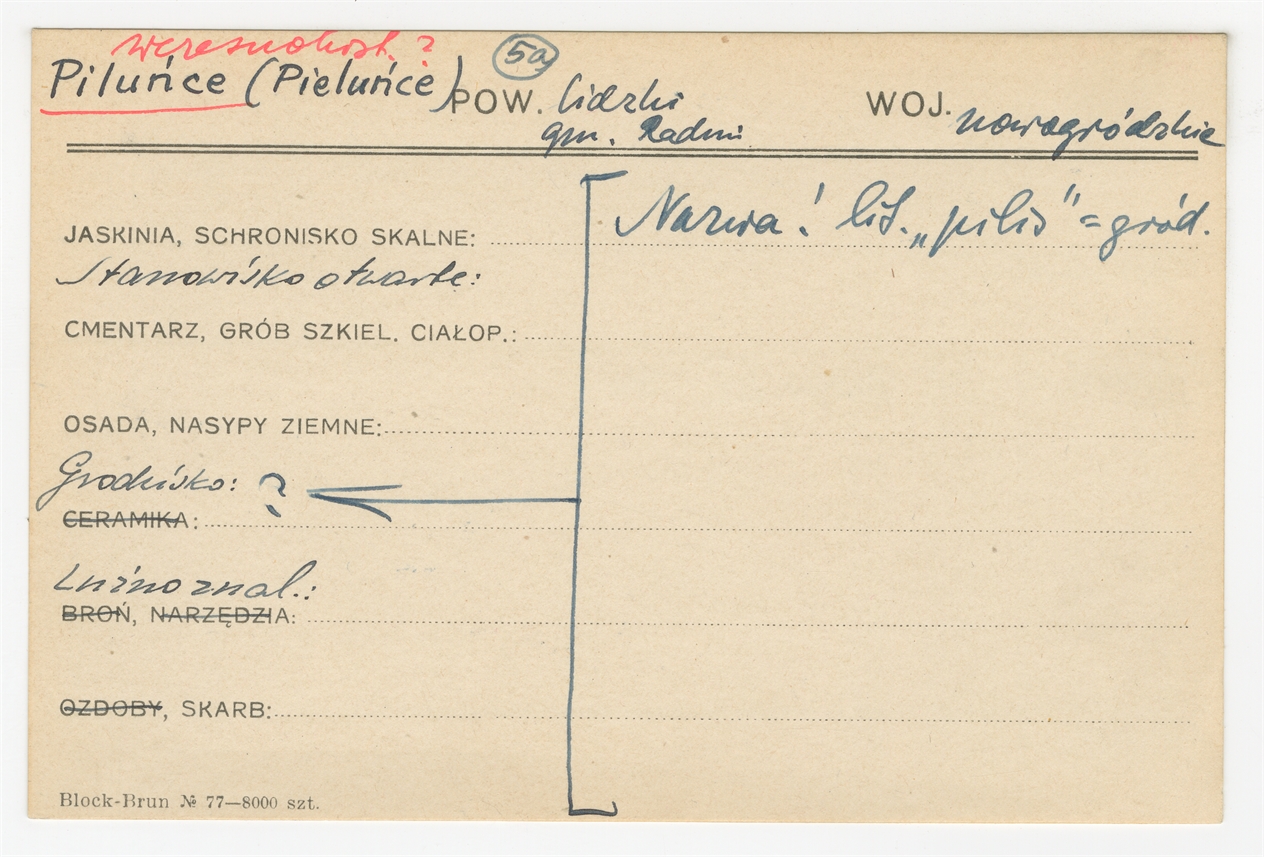 wczesnohist. ?
Piluńce (Pieluńce) 5a POW. lidzki WOJ. nowogródzkie
gm. Raduń
Nazwa! lit. „pilis" = gród.
JASKINIA, SCHRONISKO SKALNE:
Stanowisko otwarte:
CMENTARZ, GRÓB SZKIEL. CIAŁOP.:
OSADA, NASYPY ZIEMNE:
Grodzisko: ?
CERAMIKA:
Luźno znal.:
BROŃ, NARZĘDZIA:
OZDOBY, SKARB:
Block-Brun № 77—8000 szt.